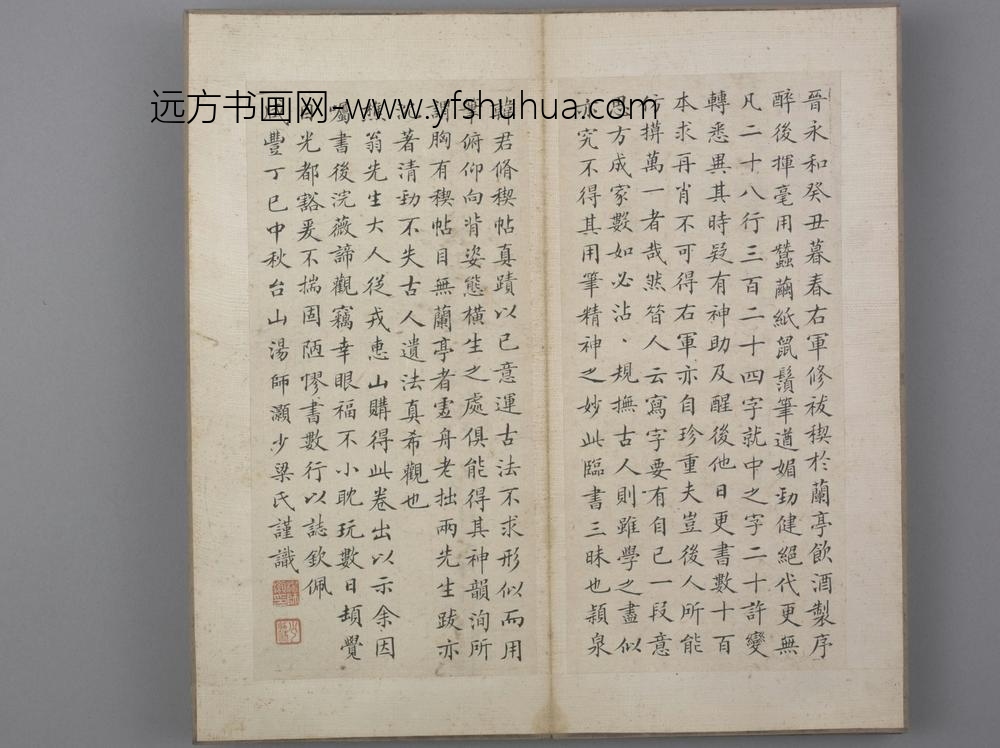 远方书画网-www.yfshuhua.com
晉永和癸丑暮春右軍修祓稧於蘭亭飲酒製序
醉後揮毫用蠶繭紙鼠鬚筆遒媚勁健絕代更無
凡二十八行三百二十四字就中之字二十許變
轉悉異其時疑有神助及醒後他日更書數十百
本求再肖不可得右軍亦自珍重夫豈後人所能
仿摸萬一者哉然昔人云寫字要有自己一段意
思方成家數如必沾、規撫古人則雖學之盡似
亦究不得其用筆精神之妙此臨書三昧也潁泉
韓君脩稧帖真蹟以己意運古法不求形似而用
筆俯仰向背姿態橫生之處俱能得其神韻洵所
謂胸有稧帖目無蘭亭者虛舟老拙兩先生跋亦
沈著清勁不失古人遺法真希觀也
翁先生大人從戎惠山購得此卷出以示余因
囑書後浣薇諦觀竊幸眼福不小耽玩數日頓覺
光都豁爰不揣固陋憀書數行以誌欽佩
咸豐丁巳中秋台山湯師灝少梁氏謹識